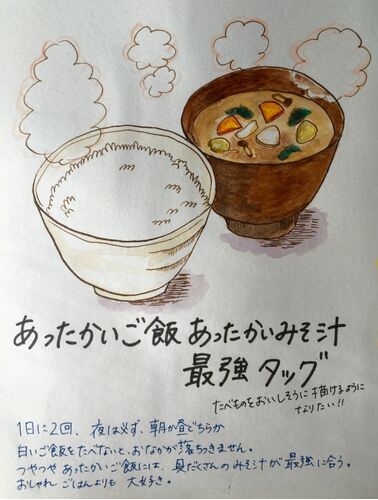 あったかいご飯 あったかいみそ汁
最強タッグ
たべものをおいしそうに描けるように
なりたい!!
1日に2回、夜は必ず、朝か昼どちらか
白いご飯をたべないと、おなかが落ちつきません。
つやつや あったかいご飯には、具だくさんのみそ汁が最強に合う。
おしゃれ ごはんよりも 大好き。